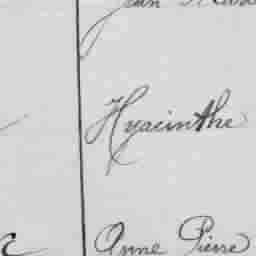 Jean
Hyacinthe
Anne Pierre